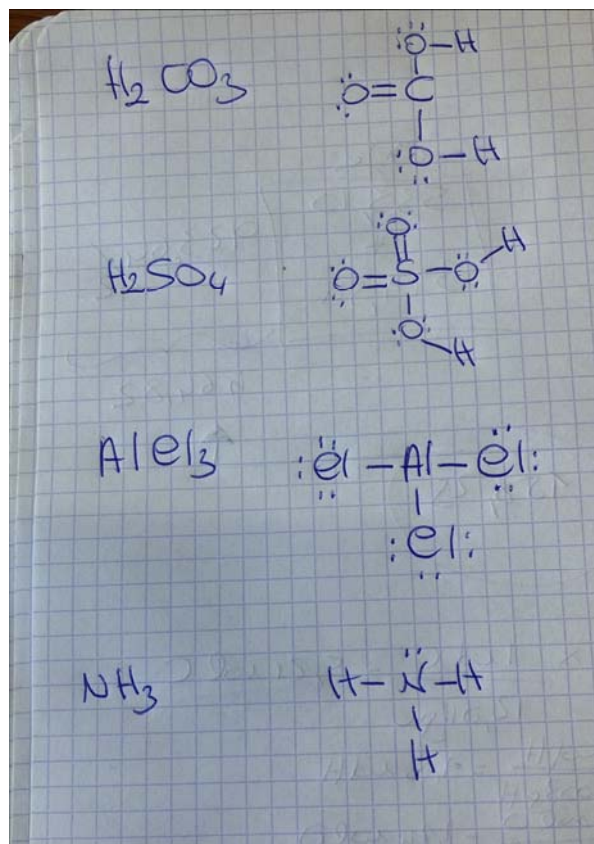 H₂CO₃
:Ö–H
Ö=C
:Ö–H
H₂SO₄
:O:
Ö=S–Ö–H
:O:–H
AlCl₃
:Cl–Al–Cl:
:Cl:
NH₃
H–N̈–H
H